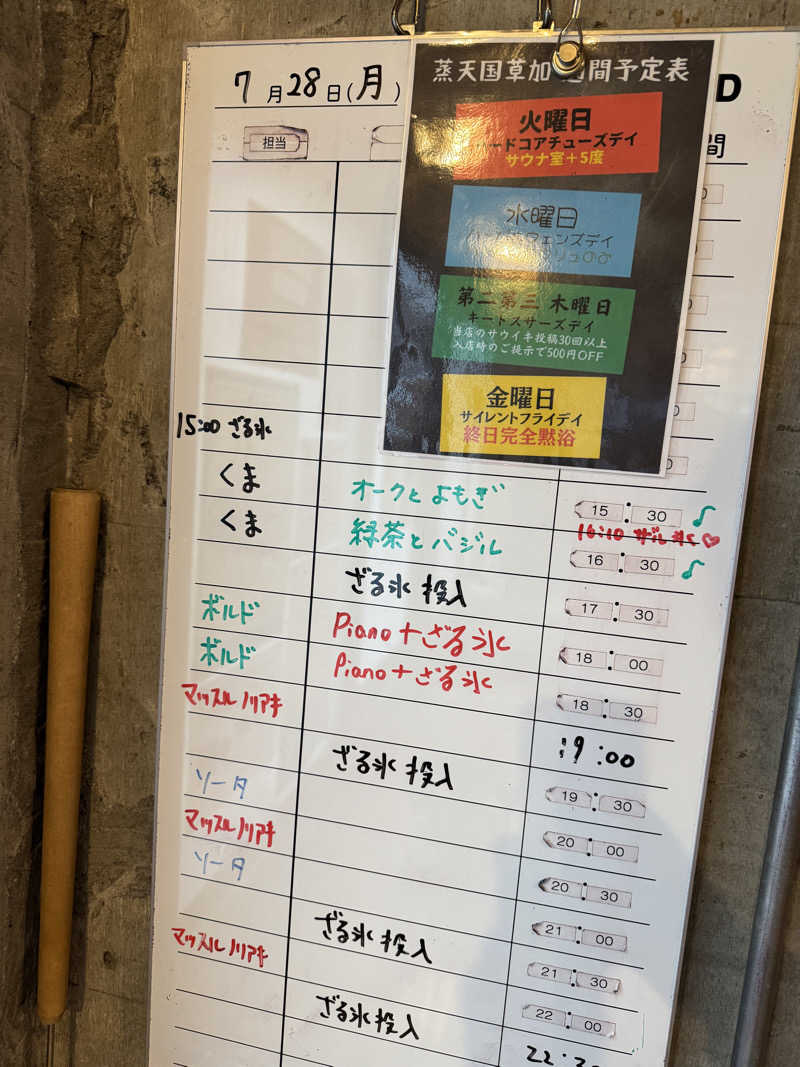 7月28日(月)
担当
D
間
蒸天国草加 間予定表
火曜日
ードコアチューズデイ
サウナ室+5度
水曜日
ェンズデイ
第二第三 木曜日
キートスサーズデイ
当店のサウイキ投稿30回以上
入店時のご提示で500円OFF
金曜日
サイレントフライデイ
終日完全黙浴
15:00 ざる氷
くま オークとよもぎ 15:30 ♪
16:10 ザル氷♡
くま 緑茶とバジル 16:30 ♪
ざる氷投入 17:30
ボルド Piano+ざる氷 18:00
ボルド Piano+ざる氷 18:30
マッスルノリアキ 19:00
ざる氷投入 19:30
ソータ 20:00
マッスルノリアキ 20:30
ソータ 21:00
ざる氷投入 21:30
マッスルノリアキ 22:00
ざる氷投入